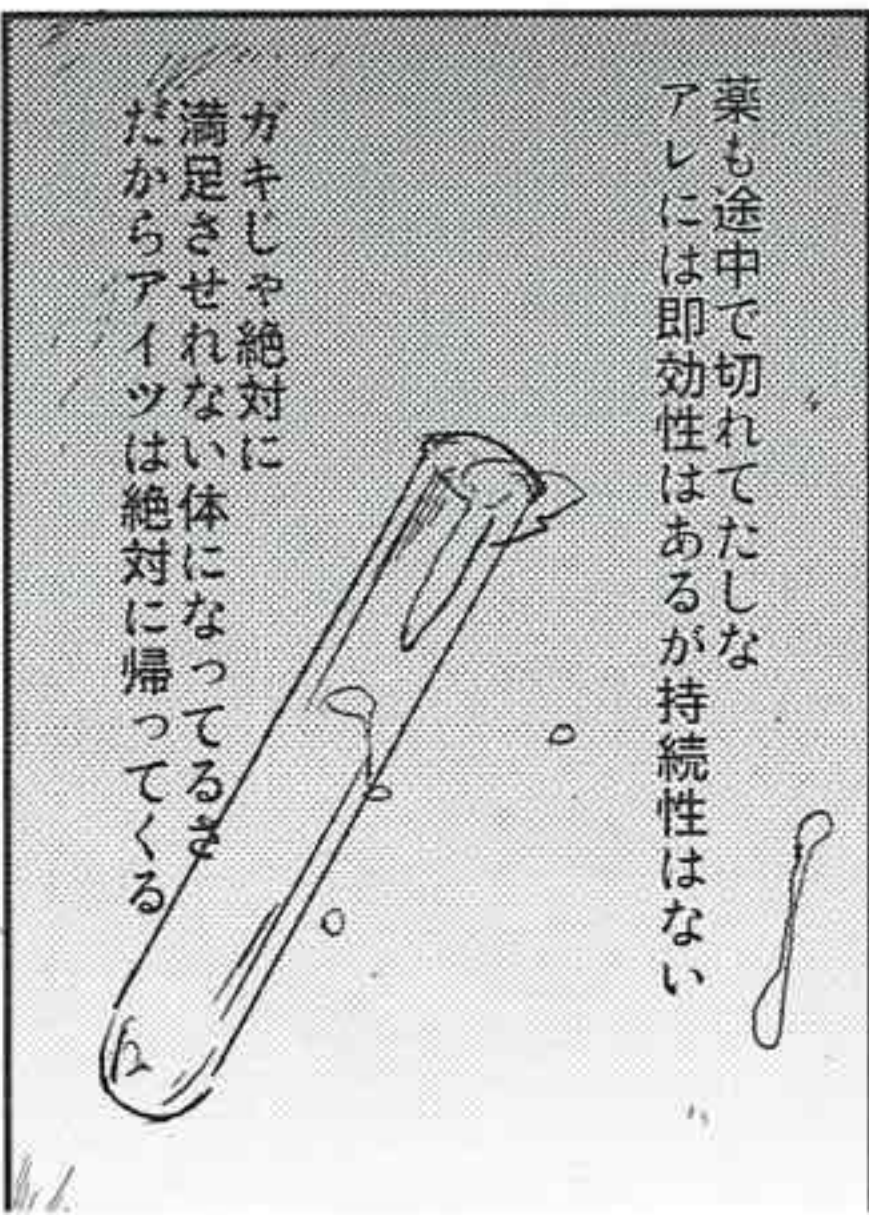 薬も途中で切れてたしな
アレには即効性はあるが持続性はない
ガキじゃ絶対に
満足させれない体になってるさ
だからアイツは絶対に帰ってくる